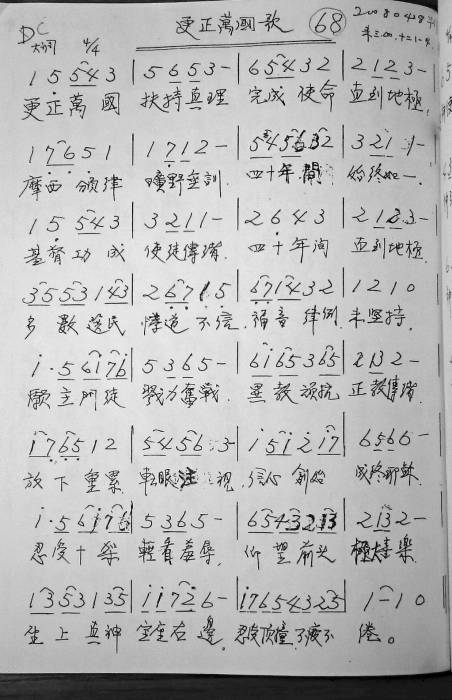 DC 更正萬國歌 68 20080428
大調 4/4 来3:00, 十二1-4
1 5 5 4 3 | 5 6 5 3 - | 6 5 4 3 2 | 2 1 2 3 -
更正萬國 扶持真理 完成使命 直到地極,
1 7 6 5 1 | 1 7 1 2 - | 5 4 5 6 3 2 | 3 2 1 1 -
摩西頒律 曠野垂訓. 四十年間 始終如一.
1 5 5 4 3 | 3 2 1 1 - | 2 6 4 3 | 2 1 2 3 -
基督功成 使徒傳揚 四十年間 直到地極.
3 5 5 3 1 4 3 | 2 6 7 1 5 | 6 7 1 4 3 2 | 1 2 1 0
多數選民 悖道不信. 福音律例 未坚持.
i · 5 6 i 7 6 | 5 3 6 5 - | 6 i 6 5 3 6 5 | 2 1 3 2 -
願主門徒 戮力奮戰. 異教頑抗 正教傳揚
i 7 6 5 1 2 | 5 4 5 6 3 - | i 5 i 2 i 7 | 6 5 6 6 -
放下重累 転眼注視, 信心創始 成終耶穌.
i · 5 6 i 7 6 | 5 3 6 5 - | 6 5 4 3 2 1 3 | 2 1 3 2 -
忍受十架 輕看羞辱. 仰望前头 極大喜樂.
1 3 5 3 1 3 5 | i i 7 2 6 - | i 7 6 5 4 3 2 5 | 1 - 1 0
坐上真神 宝座右邊. 忍受頂撞不疲不倦。